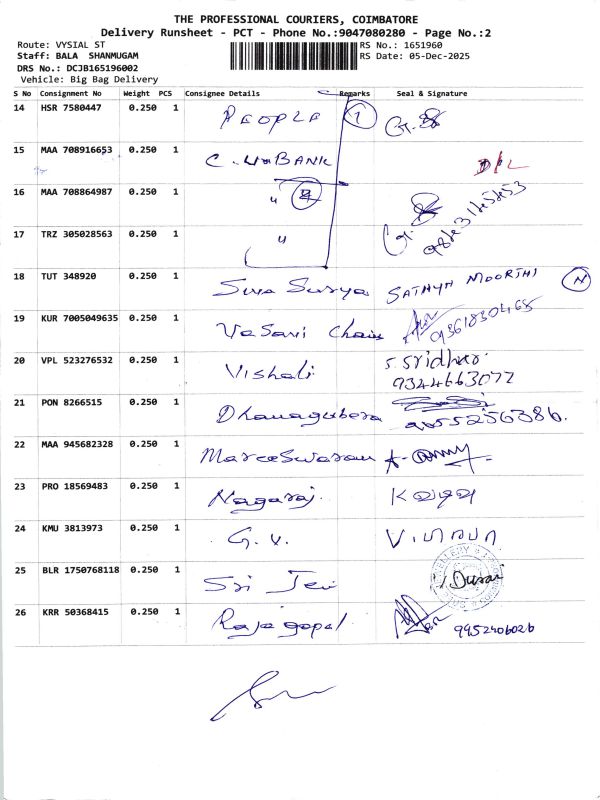 THE PROFESSIONAL COURIERS, COIMBATORE
Delivery Runsheet - PCT - Phone No.:9047080280 - Page No.:2
Route: VYSIAL ST RS No.: 1651960
Staff: BALA SHANMUGAM RS Date: 05-Dec-2025
DRS No.: DCJB165196002
Vehicle: Big Bag Delivery
S No Consignment No Weight PCS Consignee Details Remarks Seal & Signature
14 HSR 7580447 0.250 1 PEOPLE
15 MAA 708916653 0.250 1 BANK
16 MAA 708864987 0.250 1 "
17 TRZ 305028563 0.250 1 "
18 TUT 348920 0.250 1 Siva Surya SATHYA MOORTHI N
19 KUR 7005049635 0.250 1 VaSavi Chains 9361830468
20 VPL 523276532 0.250 1 Vishali S. Sridhar 9344663072
21 PON 8266515 0.250 1 Dhanagubera 9055256386.
22 MAA 945682328 0.250 1 Mareeswaran
23 PRO 18569483 0.250 1 Nagaraj.
24 KMU 3813973 0.250 1 G. V.
25 BLR 1750768118 0.250 1 Sri Jei Durai
26 KRR 50368415 0.250 1 Rajagopal 9952406026